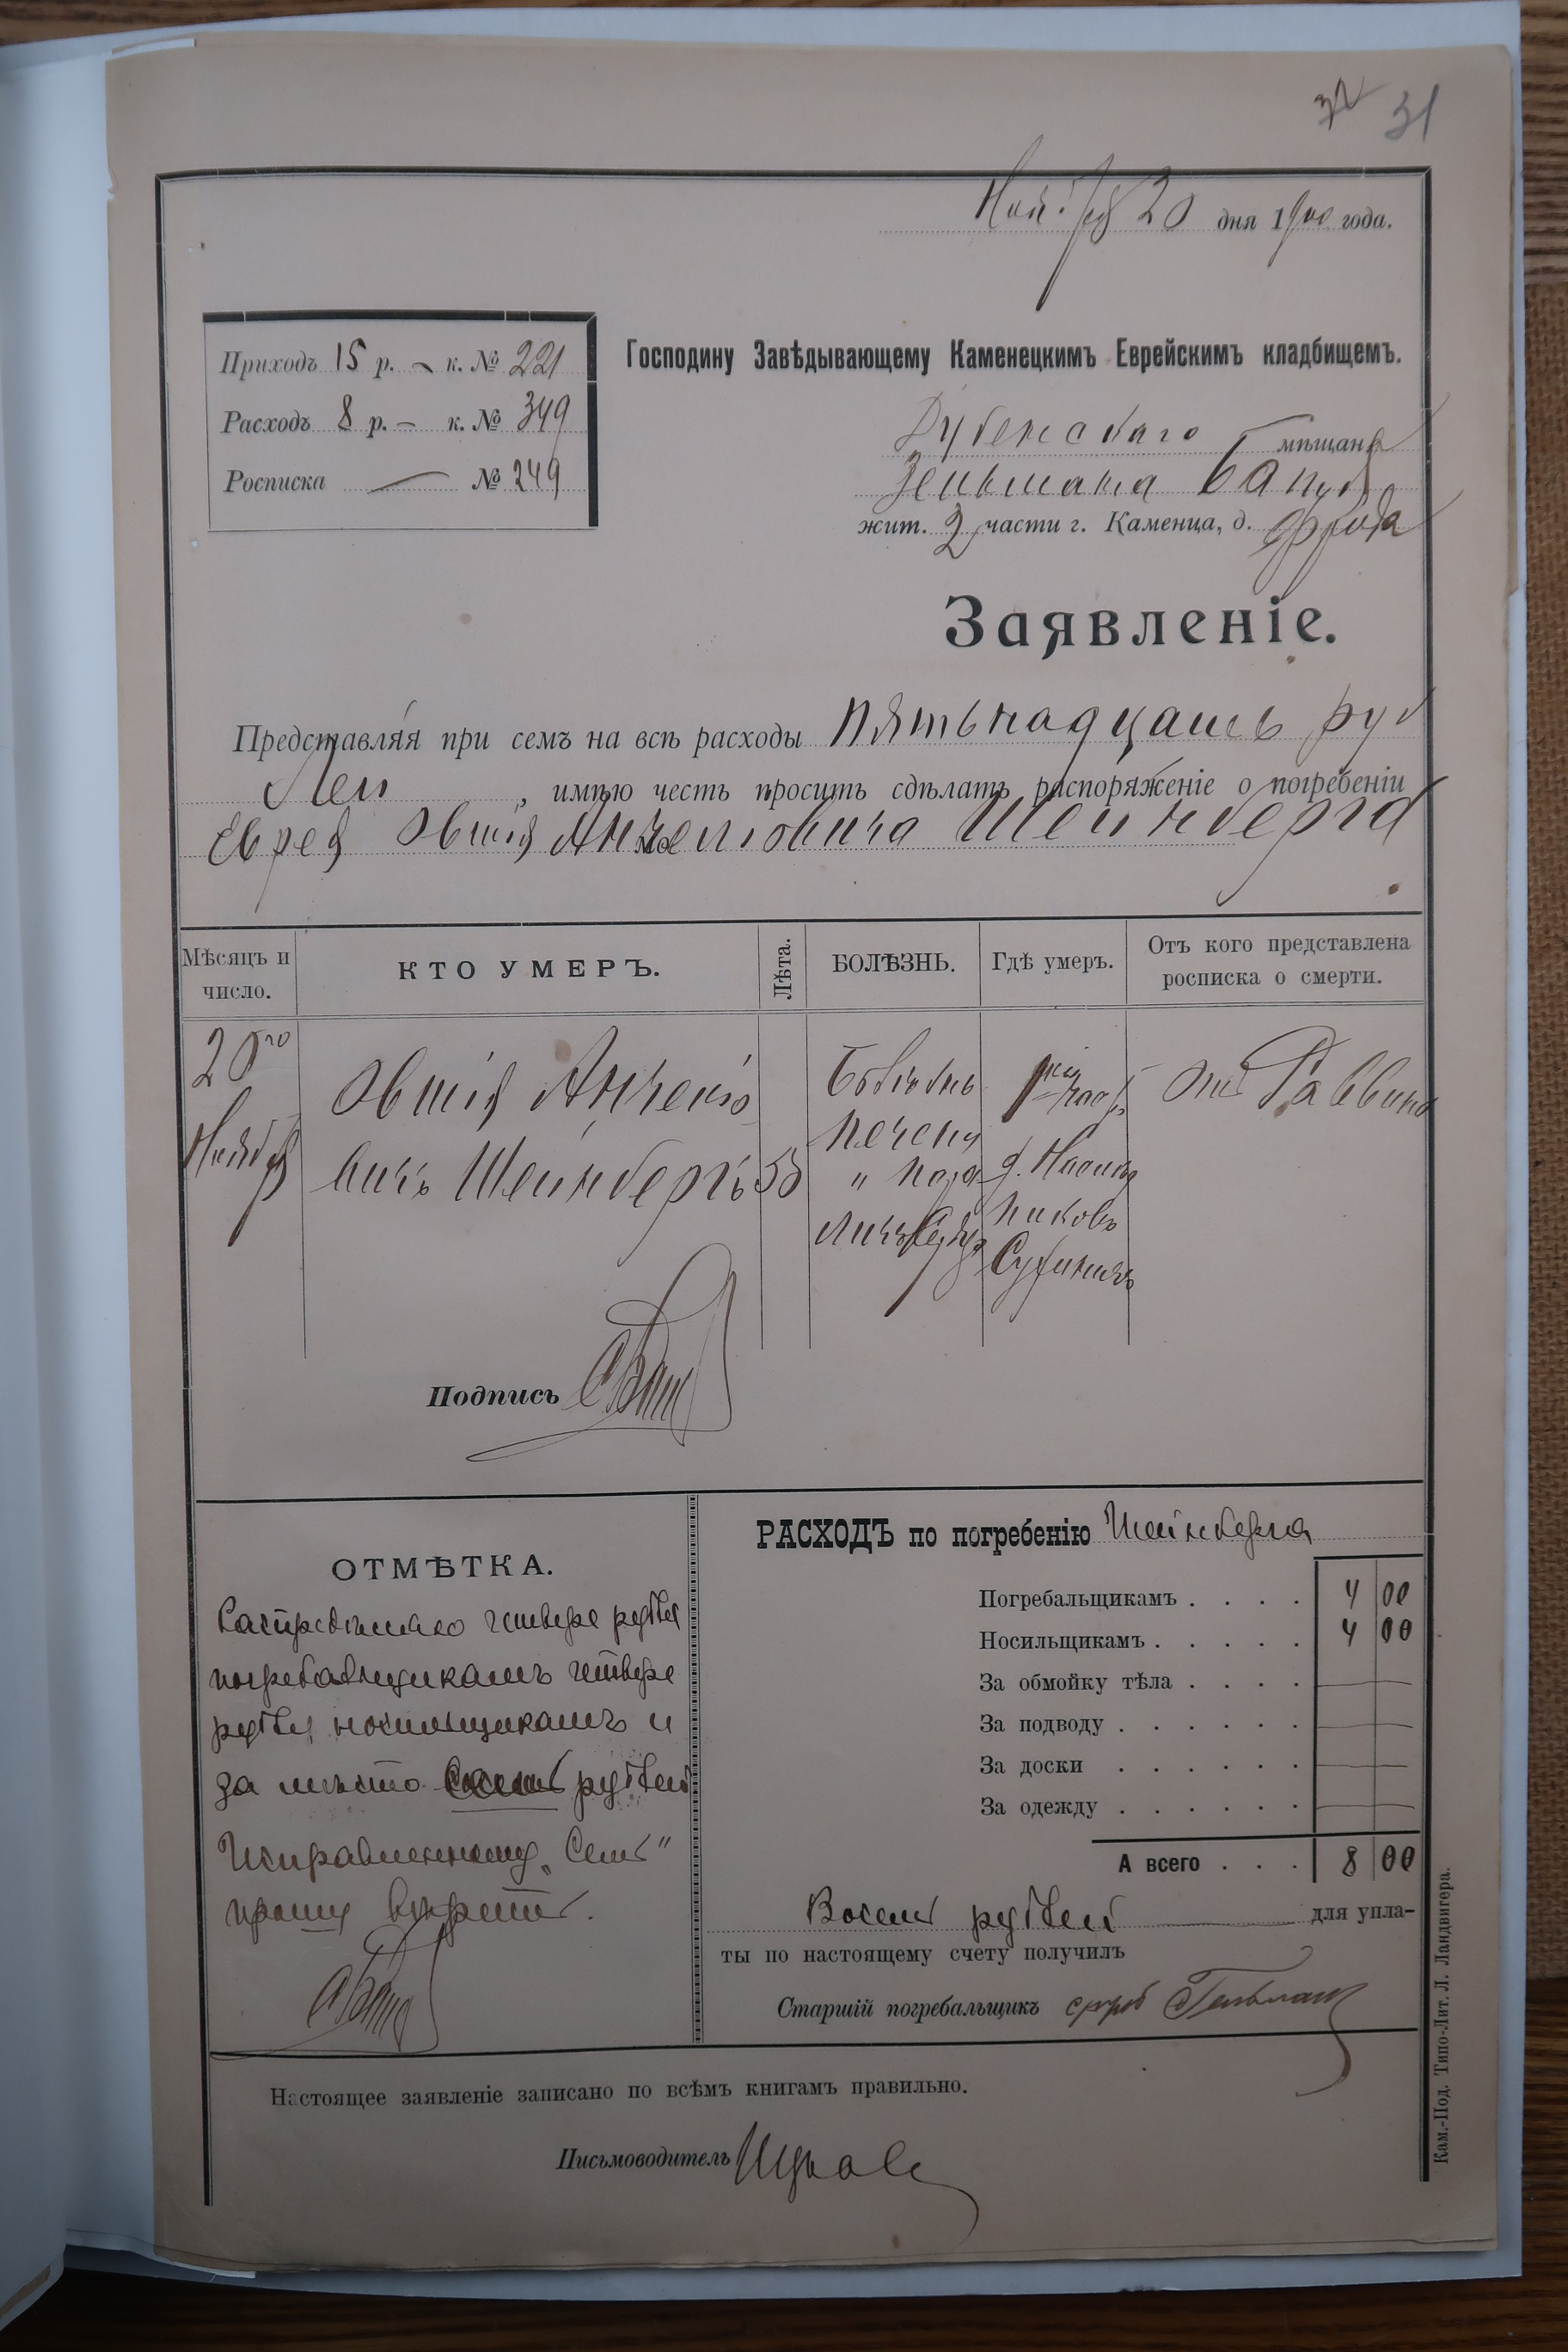 31
20 дня 1900 года.
Приходъ 15 р. – к. № 221
Расходъ 8 р. – к. № 349
Росписка — № 249
Господину Завѣдывающему Каменецкимъ Еврейскимъ кладбищемъ.
Дубенскаго мѣщан
жит. 2 части г. Каменца, д.
Заявленіе.
Представляя при семъ на всѣ расходы пятьнадцать руб
лей, имѣю честь просить сдѣлать распоряженіе о погребеніи
Еврея Овшія Анчеловича Шейнберга
Мѣсяцъ и число.
КТО УМЕРЪ.
Лѣта.
БОЛѢЗНЬ.
Гдѣ умеръ.
Отъ кого представлена росписка о смерти.
20го
Ноября
Овшія Анчело
вичъ Шейнбергъ
печени
отъ Раввина
Подпись
ОТМѢТКА.
четверо рублей
погребальщикамъ четверо
рублей носильщикамъ и
за мѣсто семь рублей
Исправленному „Семь"
прошу вѣрить.
РАСХОДЪ по погребенію Шейнберга
Погребальщикамъ . . . . 4 00
Носильщикамъ . . . . . 4 00
За обмойку тѣла . . . . —
За подводу . . . . . . —
За доски . . . . . . —
За одежду . . . . . . —
А всего . . . 8 00
Восемь рублей — для упла-
ты по настоящему счету получилъ
Старшій погребальщикъ
Настоящее заявленіе записано по всѣмъ книгамъ правильно.
Письмоводитель
Кам.-Под. Типо-Лит. Л. Ландвигера.